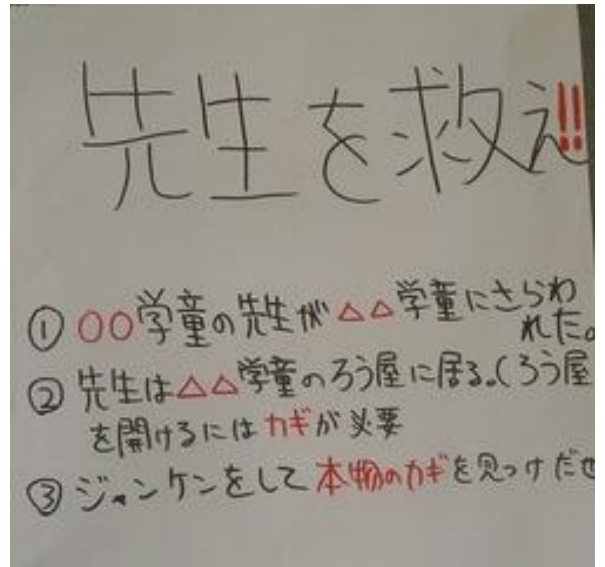 先生を救え!!
① ○○学童の先生が△△学童にさらわ
れた。
② 先生は△△学童のろう屋に居る。(ろう屋
を開けるにはカギが必要
③ ジャンケンをして本物のカギを見つけだせ